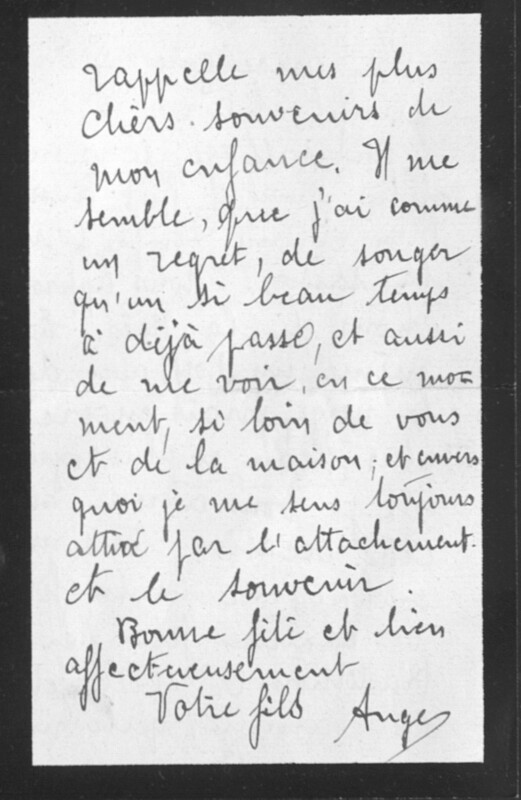 rappelle mes plus
chers souvenirs de
mon enfance. Il me
semble, que j'ai comme
un regret, de songer
qu'un si beau temps
à déjà passé, et aussi
de me voir, en ce mo-
ment, si loin de vous
et de la maison; et envers
quoi je me sens toujours
attiré par l'attachement
et le souvenir.
Bonne fête et bien
affectueusement
Votre fils Ange